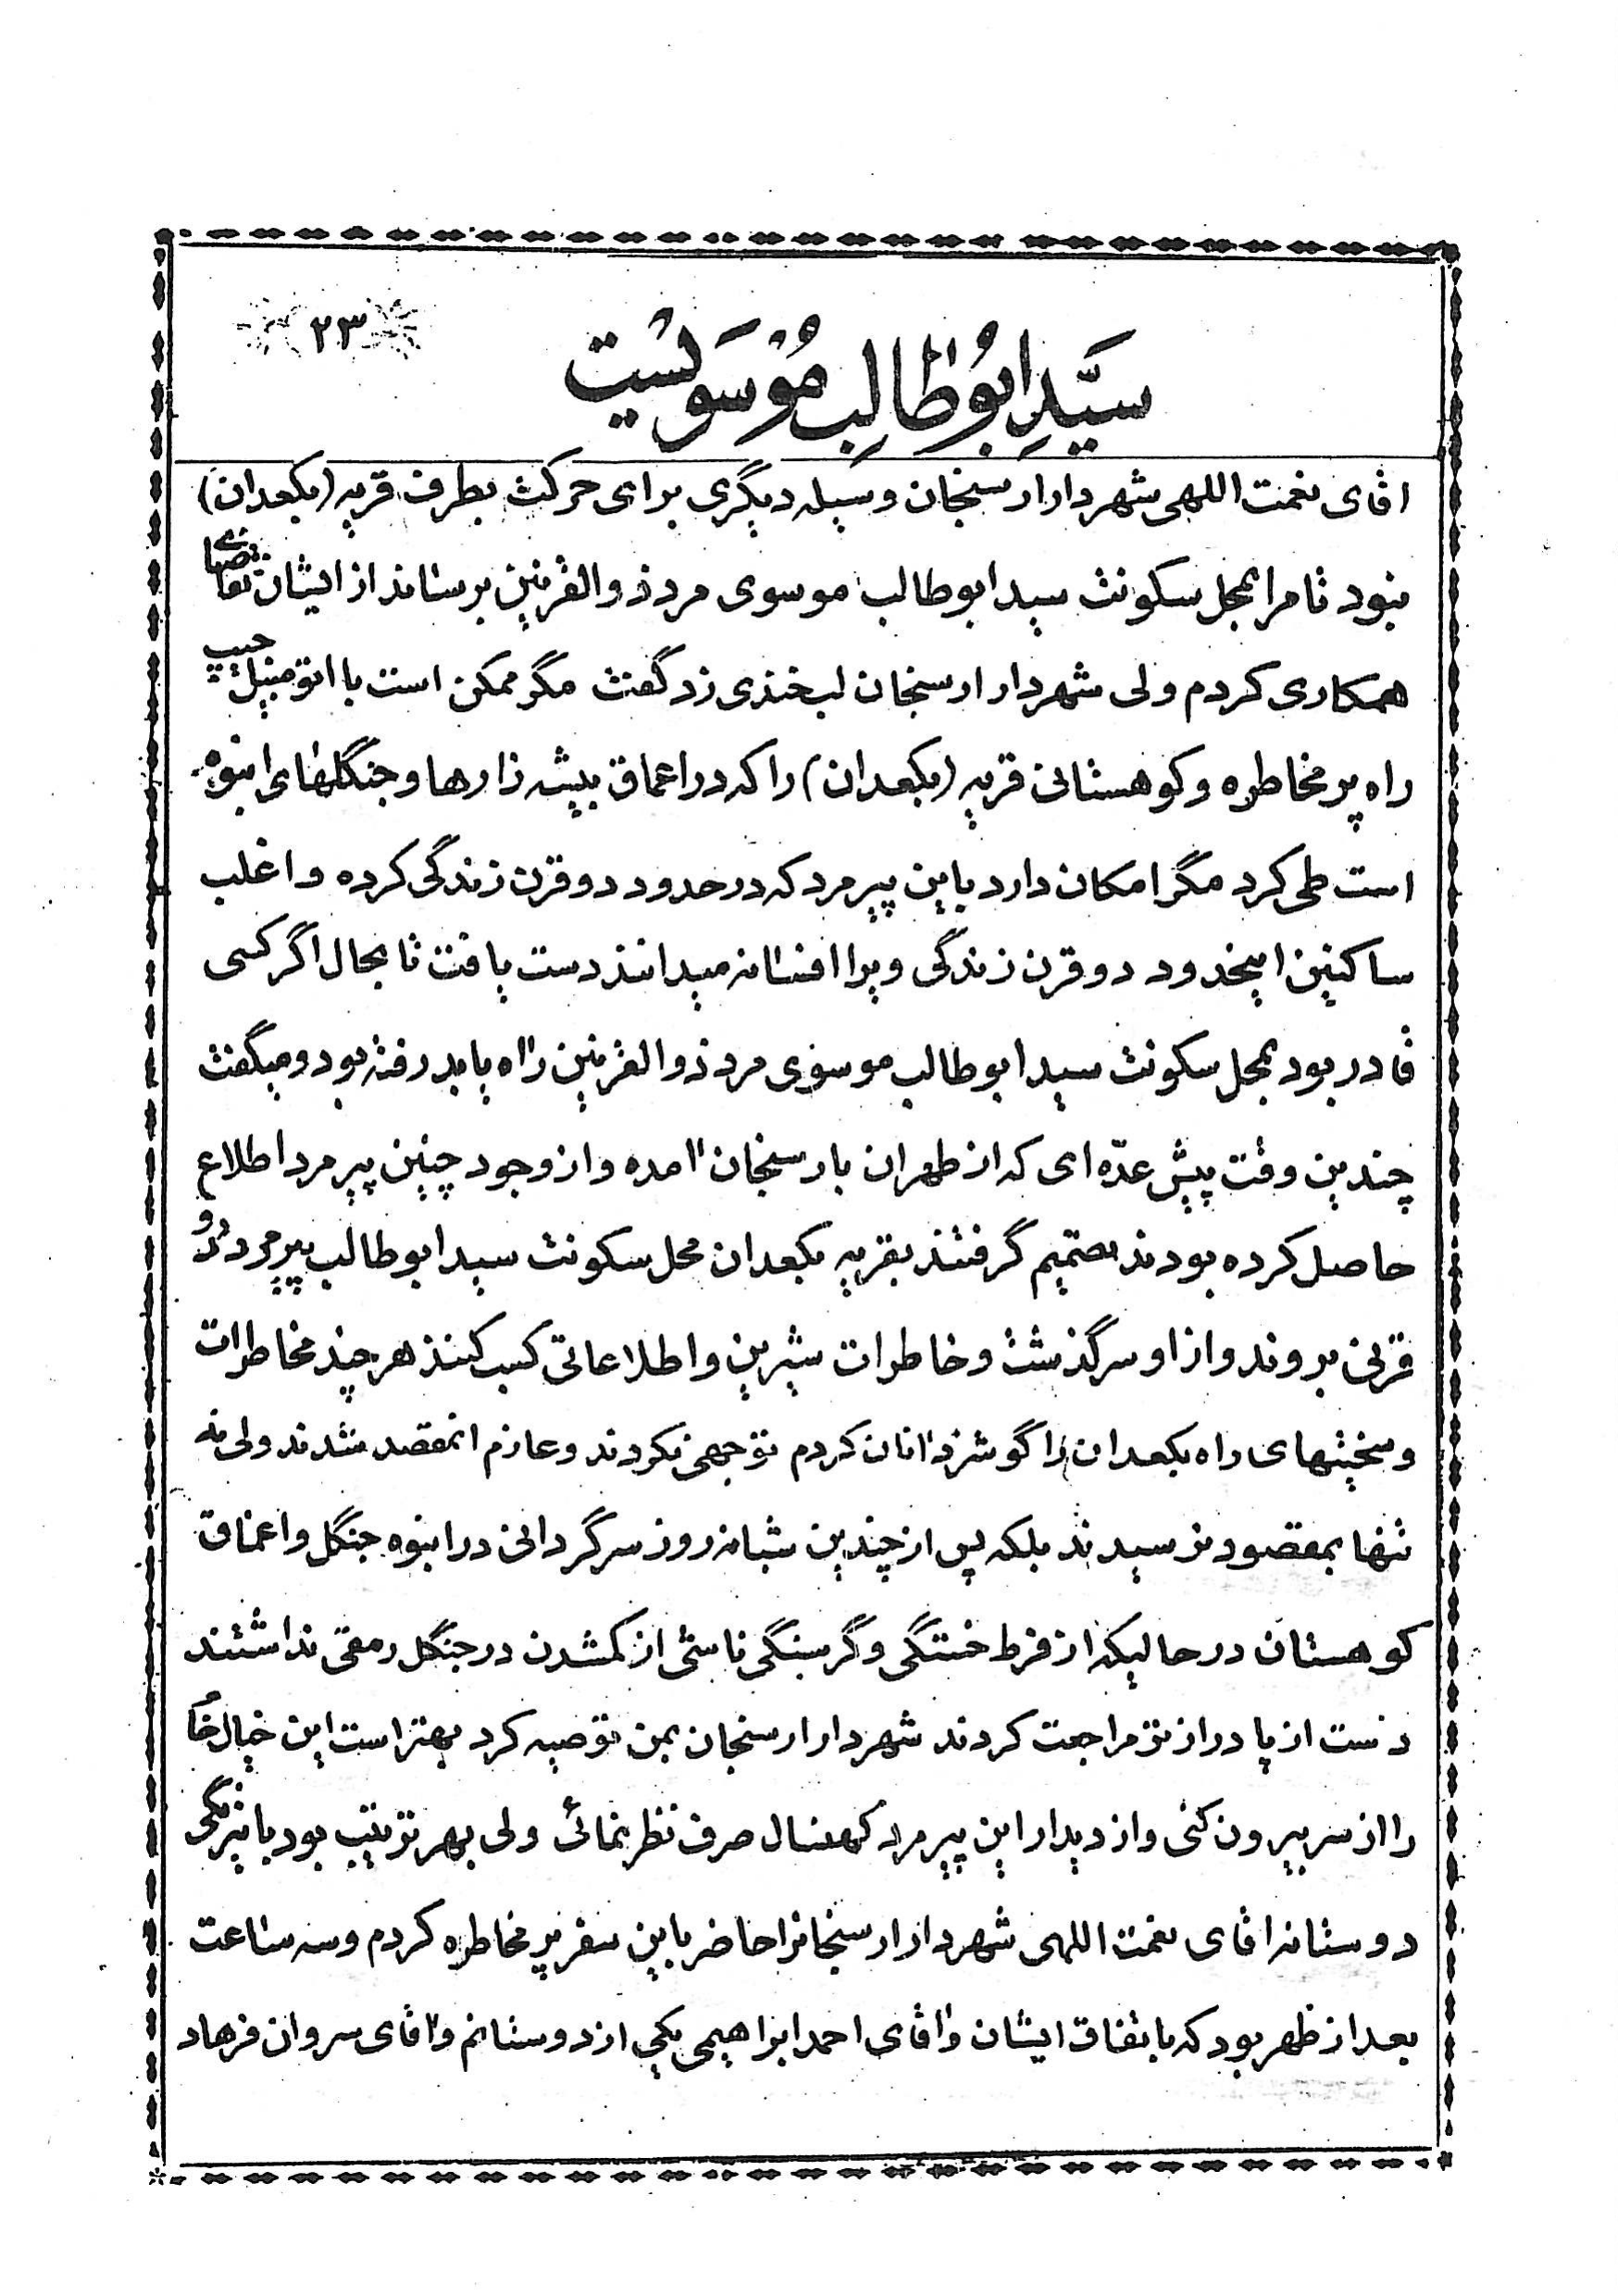 ۲۳
سَیِّد اَبُوطالِب مُوسَویست
اقای نعمت اللهی شهردار ارسنجان وسیله دیگری برای حرکت بطرف قریه (بکعدان)
نبود تا مرا بمحل سکونت سید ابوطالب موسوی مرد ذوالقرنین برساند از ایشان تقاضای
همکاری کردم ولی شهردار ارسنجان لبخندی زد گفت مگر ممکن است با اتومبیل جیپ
راه پر مخاطره و کوهستانی قریه (بکعدان) را که در اعماق بیشه زارها و جنگلهای انبوه
است طی کرد مگر امکان دارد باین پیرمرد که در حدود دو قرن زندگی کرده و اغلب
ساکنین اینحدود دو قرن زندگی ویرا افسانه میدانند دست یافت تا بحال اگر کسی
قادر بود بمحل سکونت سید ابوطالب موسوی مرد ذوالقرنین راه یابد رفته بود و میگفت
چندین وقت پیش عدّه ای که از طهران بارسنجان امده و از وجود چنین پیرمرد اطلاع
حاصل کرده بودند تصمیم گرفتند بقریه بکعدان محل سکونت سید ابوطالب پیرمرد دو
قرنی بروند و از او سرگذشت و خاطرات شیرین و اطلاعاتی کسب کنند هر چند مخاطرات
و سختیهای راه بکعدان را گوشزد انان کردم توجهی نکردند و عازم انمقصد شدند ولی نه
تنها بمقصود نرسیدند بلکه پس از چندین شبانه روز سرگردانی در انبوه جنگل و اعماق
کوهستان در حالیکه از فرط خستگی و گرسنگی ناشی از گمشدن در جنگل رمقی نداشتند
دست از پا درازتر مراجعت کردند شهردار ارسنجان بمن توصیه کرد بهتر است این خیال خام
را از سر بیرون کنی و از دیدار این پیرمرد کهنسال صرف نظر نمائی ولی بهر ترتیب بود با نیرنگی
دوستانه اقای نعمت اللهی شهردار ارسنجانرا حاضر باین سفر پر مخاطره کردم و سه ساعت
بعد از ظهر بود که باتفاق ایشان و اقای احمد ابراهیمی یکی از دوستانم و اقای سروان فرهاد